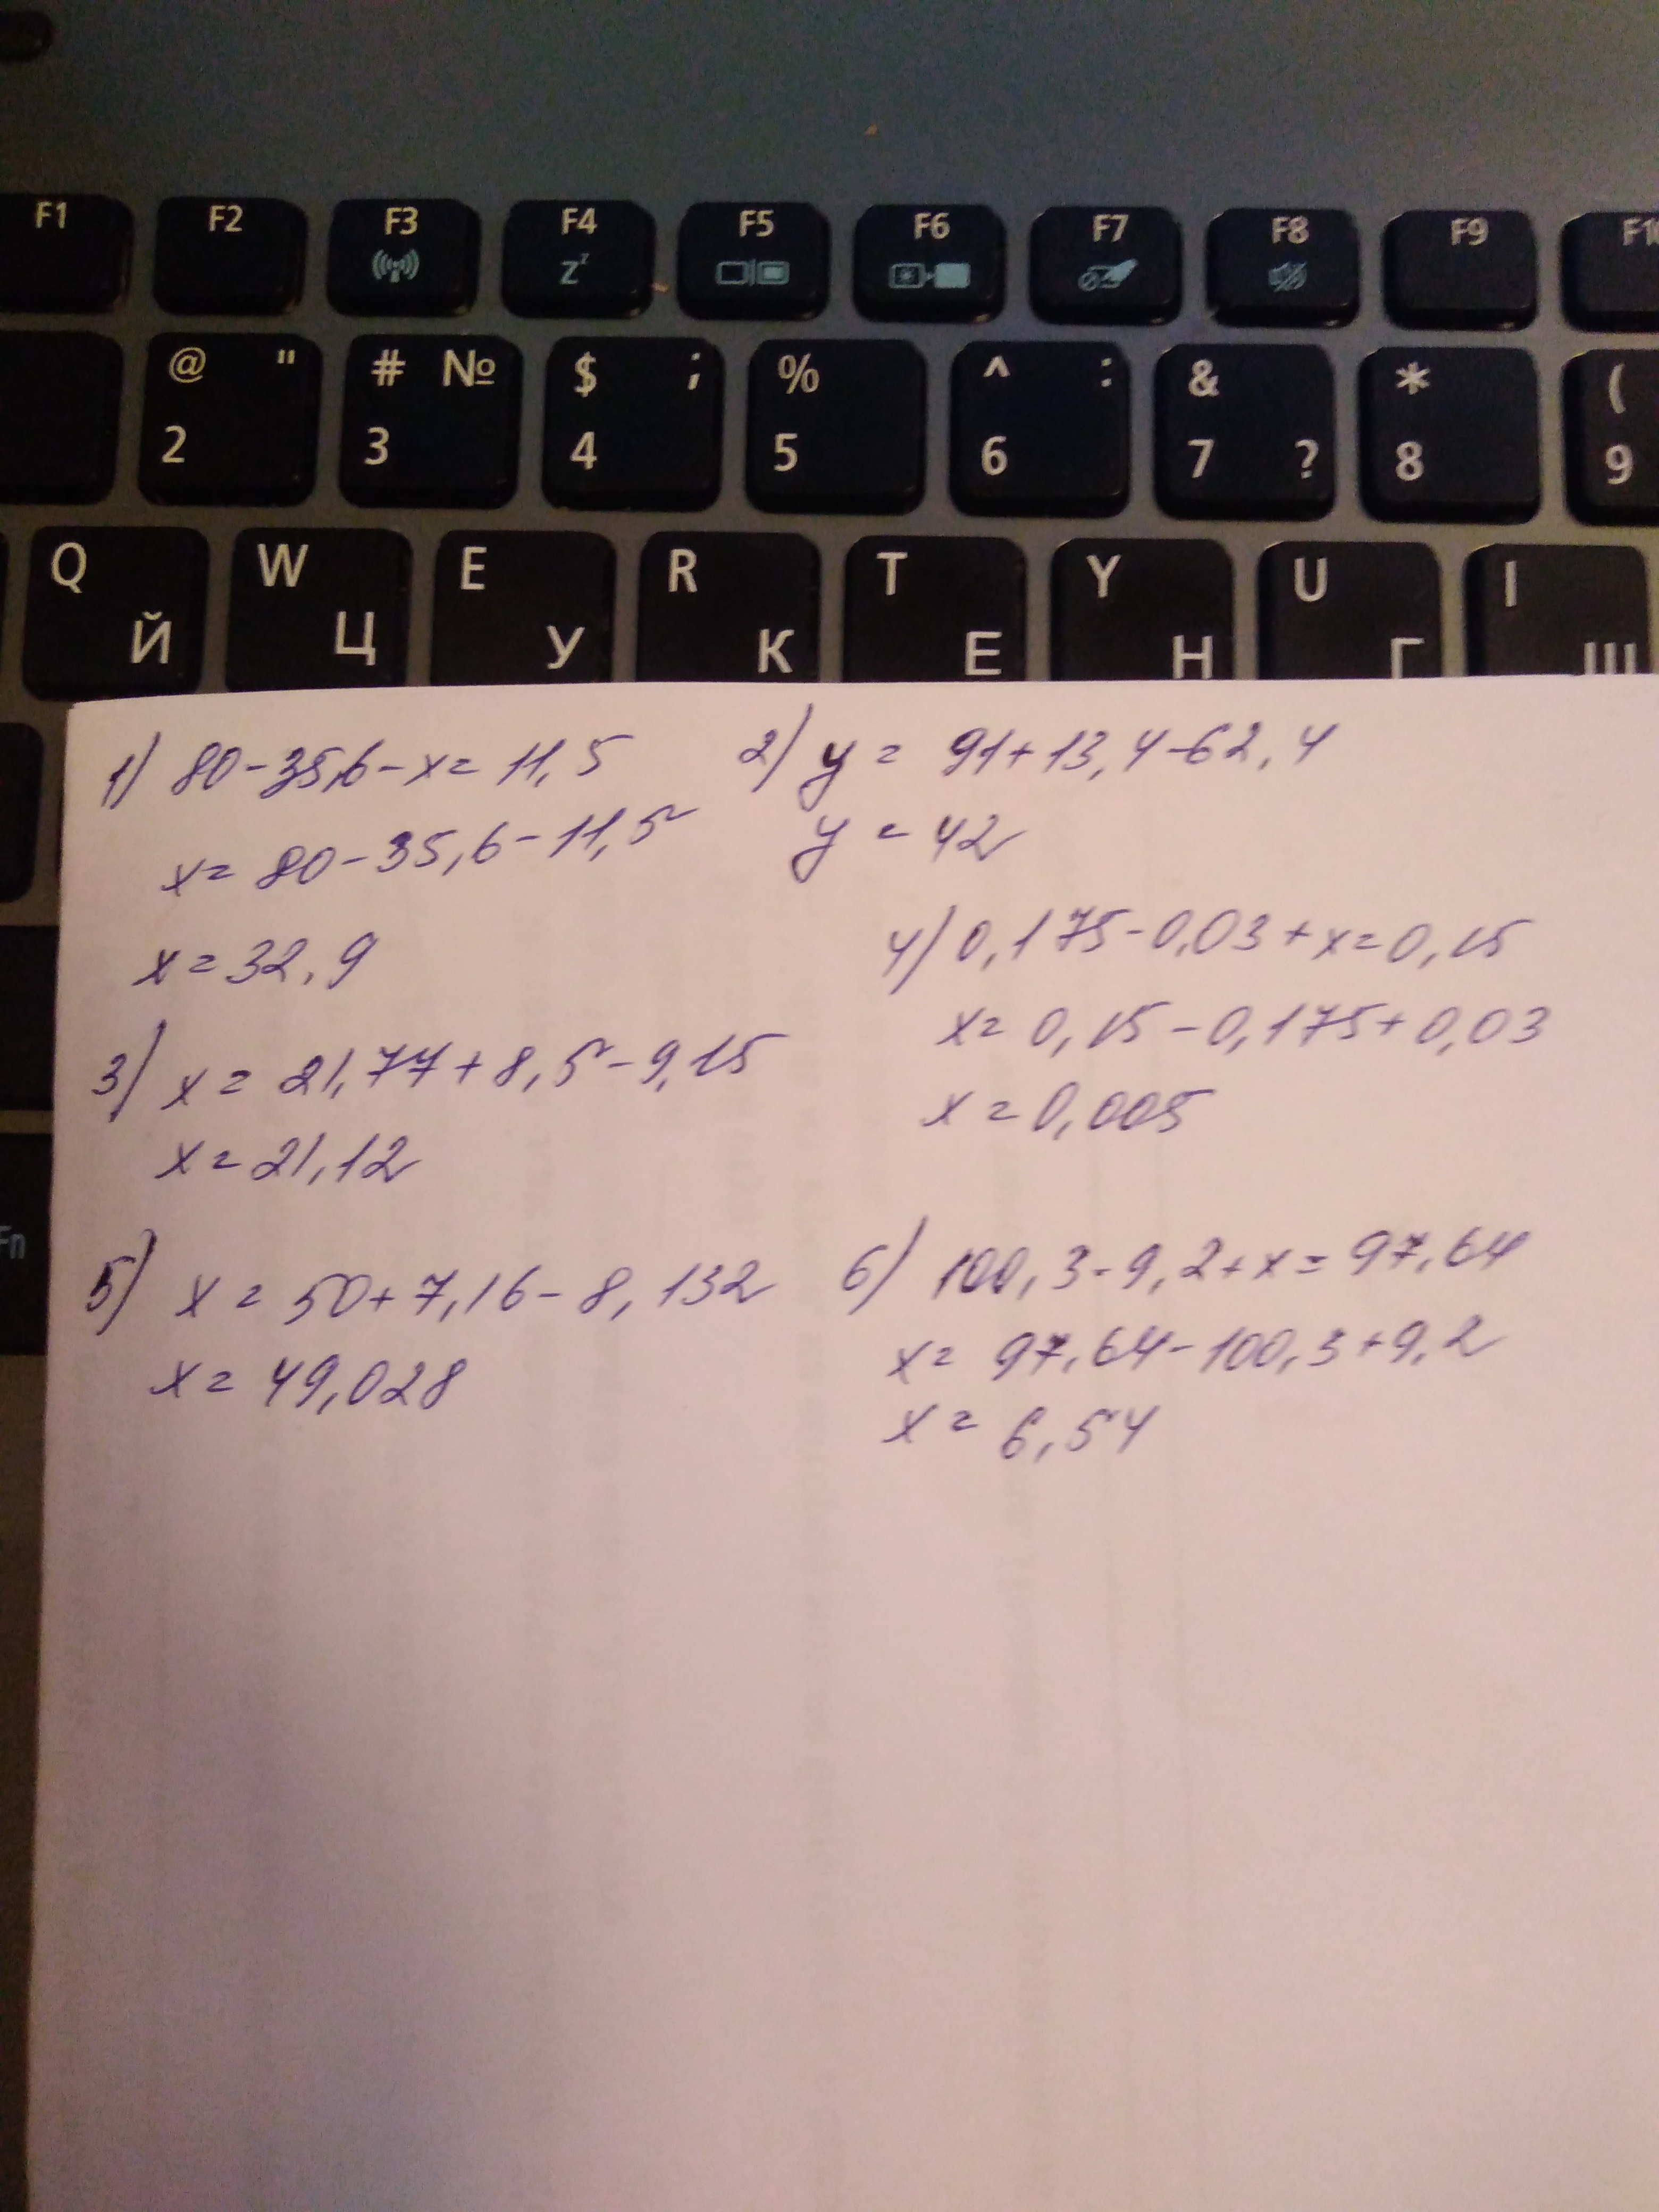 F1 F2 F3 F4 F5 F6 F7 F8 F9 F10
Z z
@ " # № $ ; % ^ : & * (
2 3 4 5 6 7 ? 8 9
Q W E R T Y U I
Й Ц У К Е Н Г Ш
Fn
1) 80-35,6-x=11,5
x=80-35,6-11,5
x=32,9
2) y=91+13,4-62,4
y=42
3) x=21,77+8,5-9,15
x=21,12
4) 0,175-0,03+x=0,15
x=0,15-0,175+0,03
x=0,005
5) x=50+7,16-8,132
x=49,028
6) 100,3-9,2+x=97,64
x=97,64-100,3+9,2
x=6,54